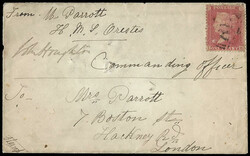 From Mr Parrott
H. M. S. Orestes
Commanding officer
To
Mrs Parrott
7 Boston St
Hackney Rd
London